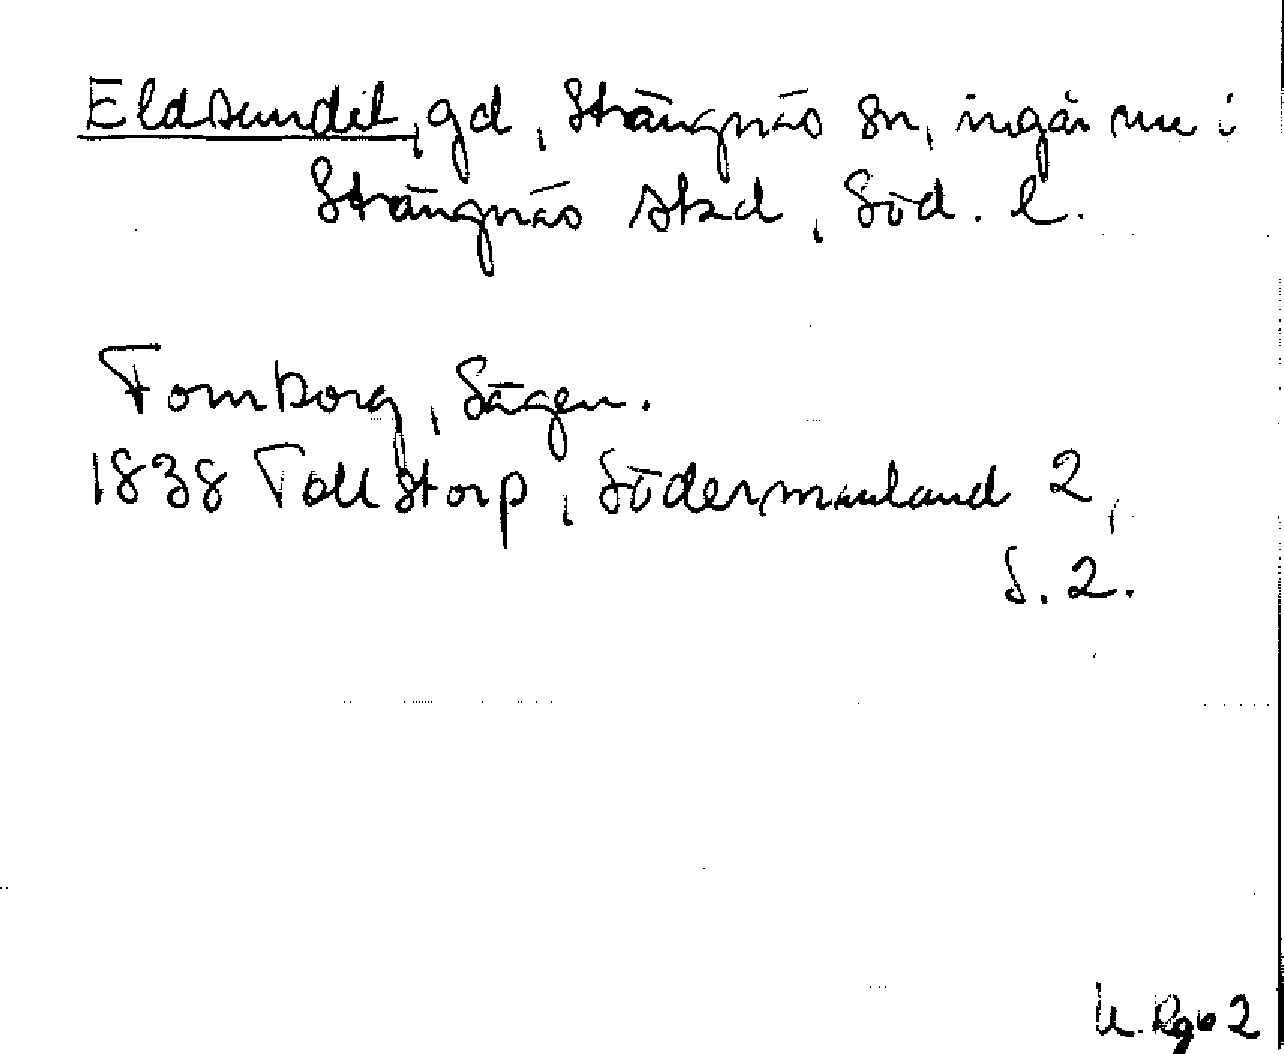 Eldsundet, gd, Strängnäs sn, ingår nu i
Strängnäs stad, Söd. l.
Fornborg, Sägen.
1838 Tollstorp, Södermanland 2,
S. 2.
2